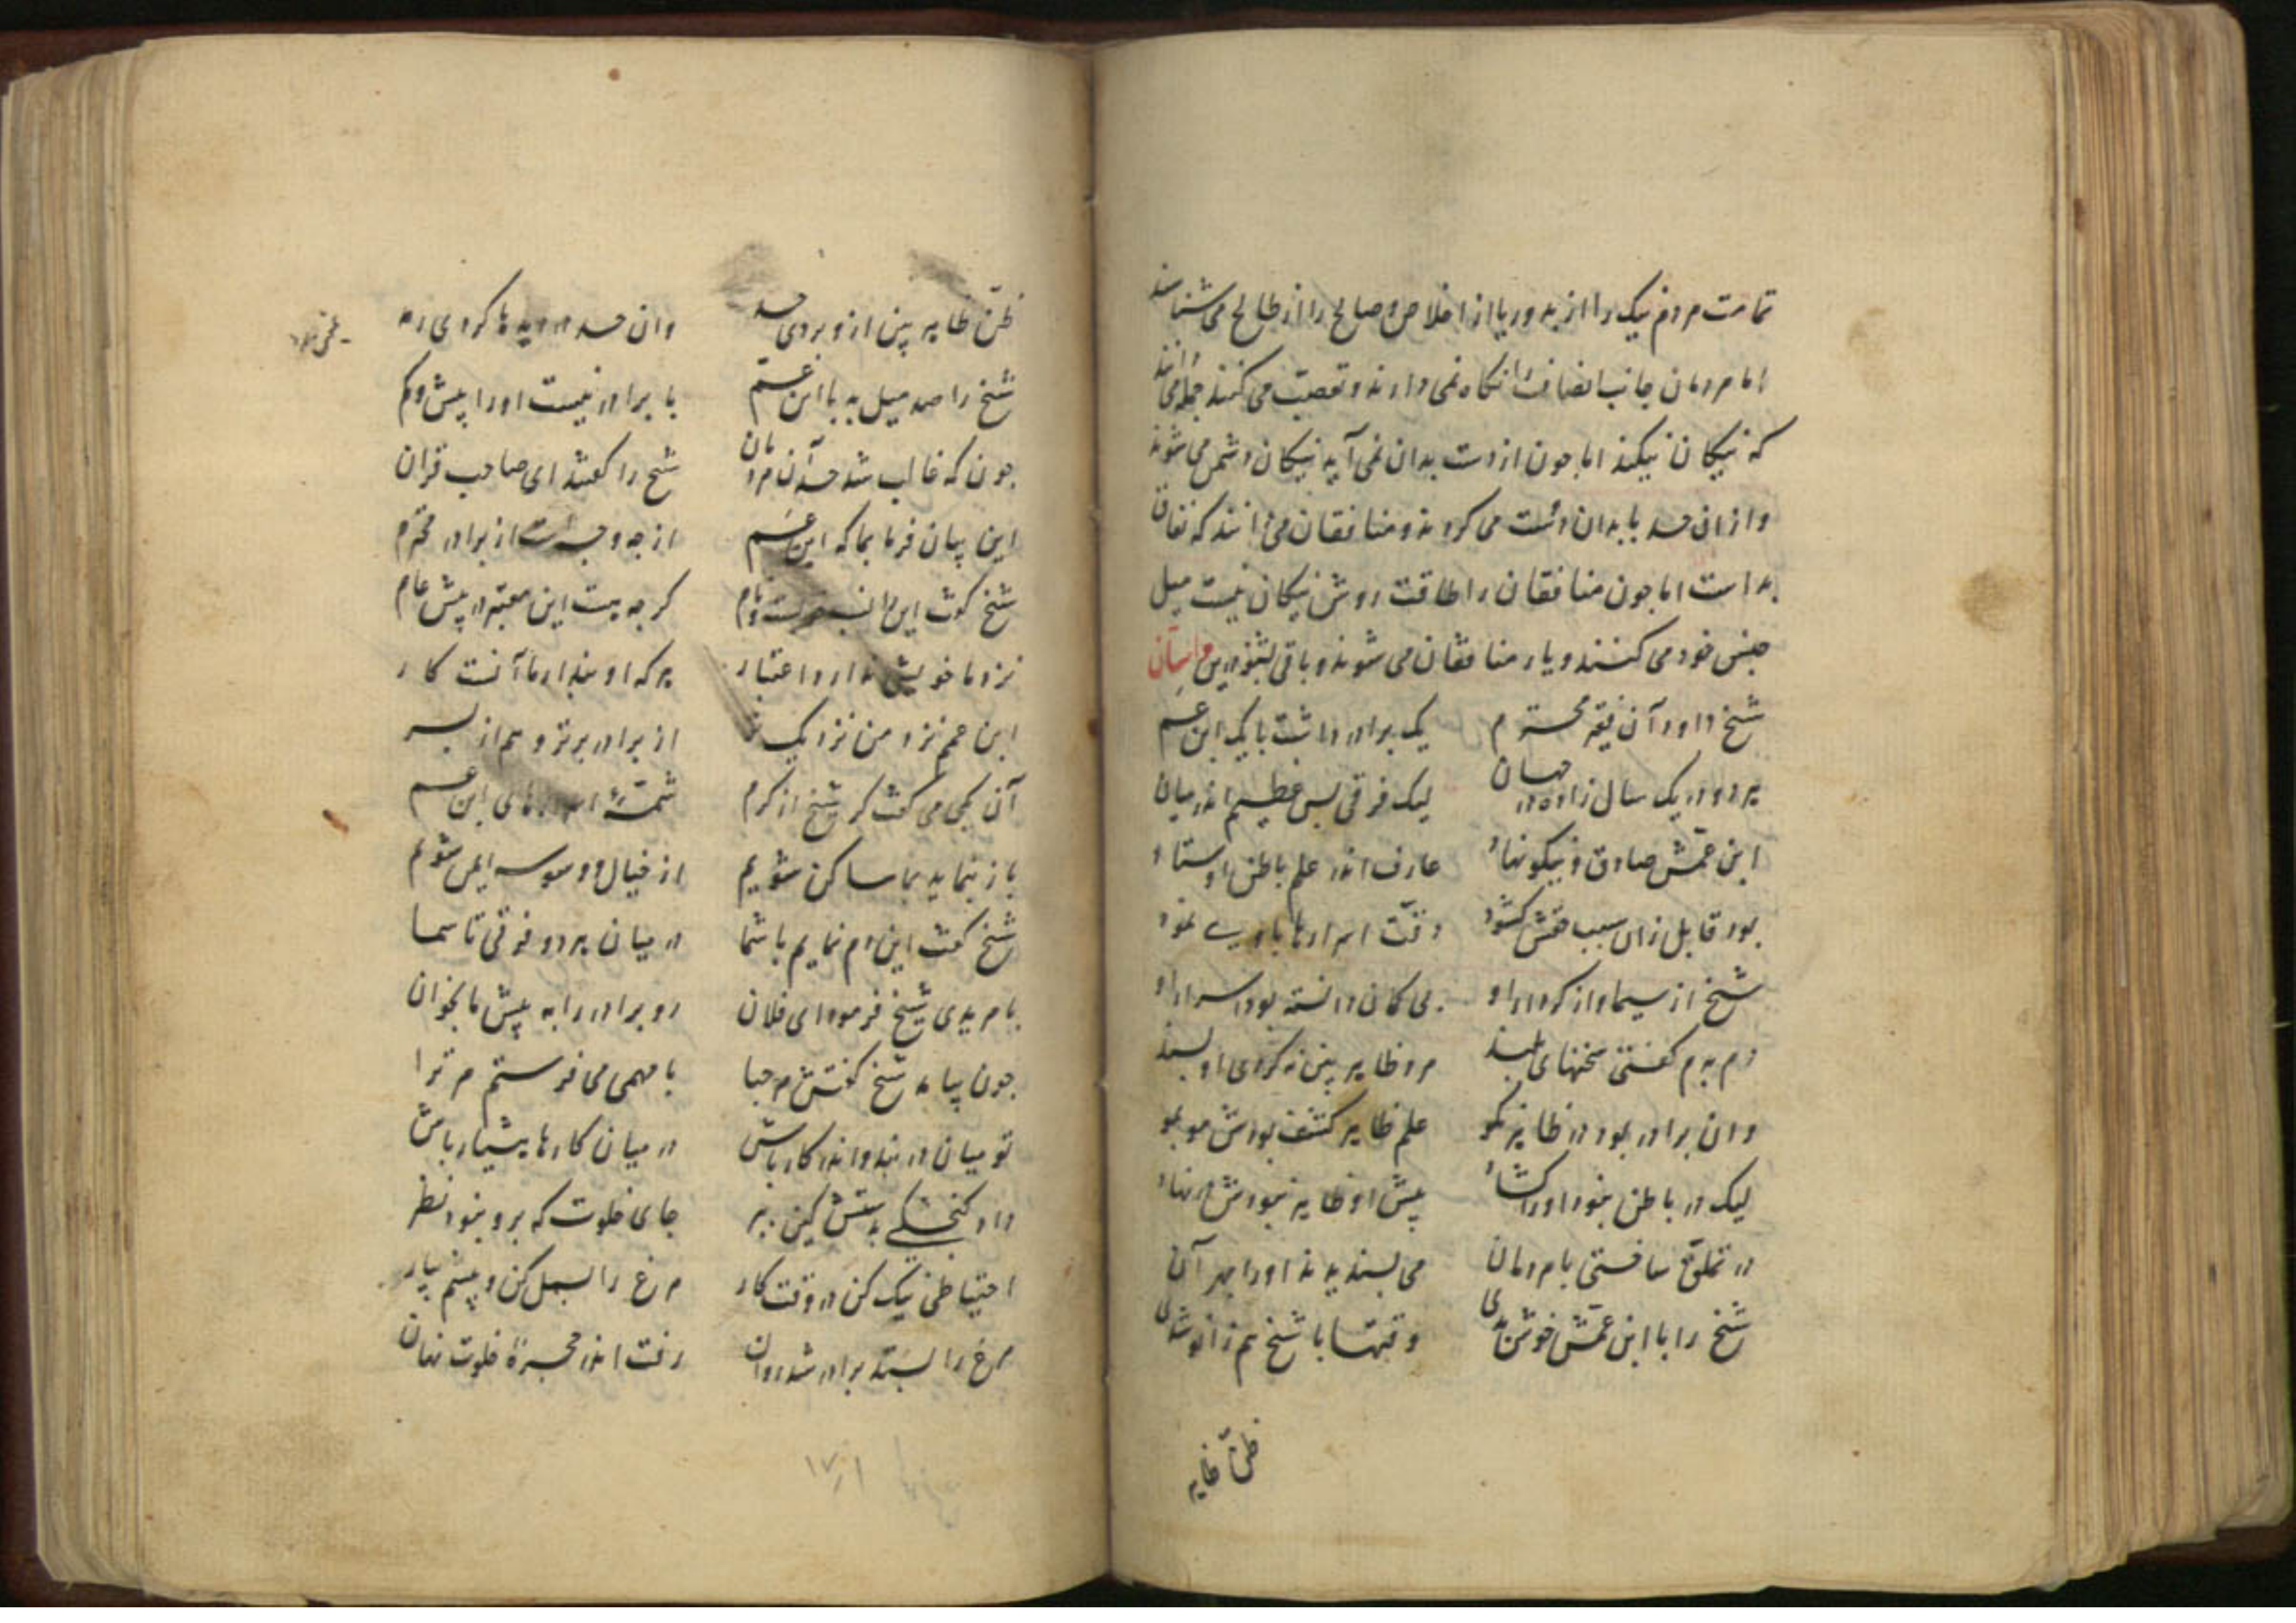 تمامت مردم نیک را از بد و ریا از اخلاص و صالح را از طالح می شناسند
اما مردمان جانب انصاف را نکاه نمی دارند و تعصب می کنند جمله می دانند
که نیکان نیکند اما جون از دست بدان نمی آید نیکان دشمن می شوند
و ازان حسد با بدان دست می کردند و منافقان می دانند که نفاق
بد است اما جون منافقان را طاقت روش نیکان نیست میل
جنس خود می کنند و یار منافقان می شوند و باقی بشنو درین داستان
شیخ داود آن فقیه محترم یک برادر داشت با یک ابن عم
هر دو در یک سال زاده در جهان لیک فرقی بس عظیم اندر میان
ابن عمش صادق و نیکو نهاد عارف اندر علم باطن اوستاد
بود قابل زان سبب حقش کشود دقت اسرارها با وی نمود
شیخ از سیما و از کردار او بی کمان دانسته بود اسرار او
دم بدم کفتی سخنهای بلند مرد ظاهر بین نه کردی او پسند
وان برادر بود در ظاهر نکو علم ظاهر کشف بودش مو بمو
لیک در باطن نبود او را کشاد پیش او ظاهر نبودش در نهاد
در تملق ساختی با مردمان می پسندیدند او را بهر آن
شیخ را با ابن عمش خوش بدی وقتها با شیخ هم زانو شدی
ظن ظاهر
ظن ظاهر بین ازو بردی حسد وان حسد در دیدها کردی رمد
شیخ را صد میل بد با ابن عم با برادر نیست او را بیش و کم
جون که غالب شد حسد آن مردمان شیخ را کفتند ای صاحب قران
این بیان فرما بما که ابن عم از جه وجه است از برادر محترم
شیخ کفت این را کرجه هست این معتبر در پیش عام
نزد ما خویشی ندارد اعتبار هر که او بیدار ما آنست کار
ابن عم نزد من نزدیک تر از برادر برتر و هم از پسر
آن یکی می کفت کر شیخ از کرم شمهٔ اسرارهای ابن عم
باز بنماید بما ساکن شویم از خیال و وسوسه ایمن شویم
شیخ کفت این دم نمایم با شما در میان هر دو فرقی تا سما
با مریدی شیخ فرمود ای فلان رو برادر را به پیش ما بخوان
جون بیامد شیخ کفتش مرحبا با مهمی می فرستم مر ترا
تو میان در بند و اندر کار باش در میان کارها هشیار باش
داد کنجشکی بدستش کین ببر جای خلوت که برو نبود نظر
احتیاطی نیک کن در وقت کار مرغ را بسمل کن و پیشم بیار
مرغ را بستد برادر شد روان رفت اندر حجرهٔ خلوت نهان